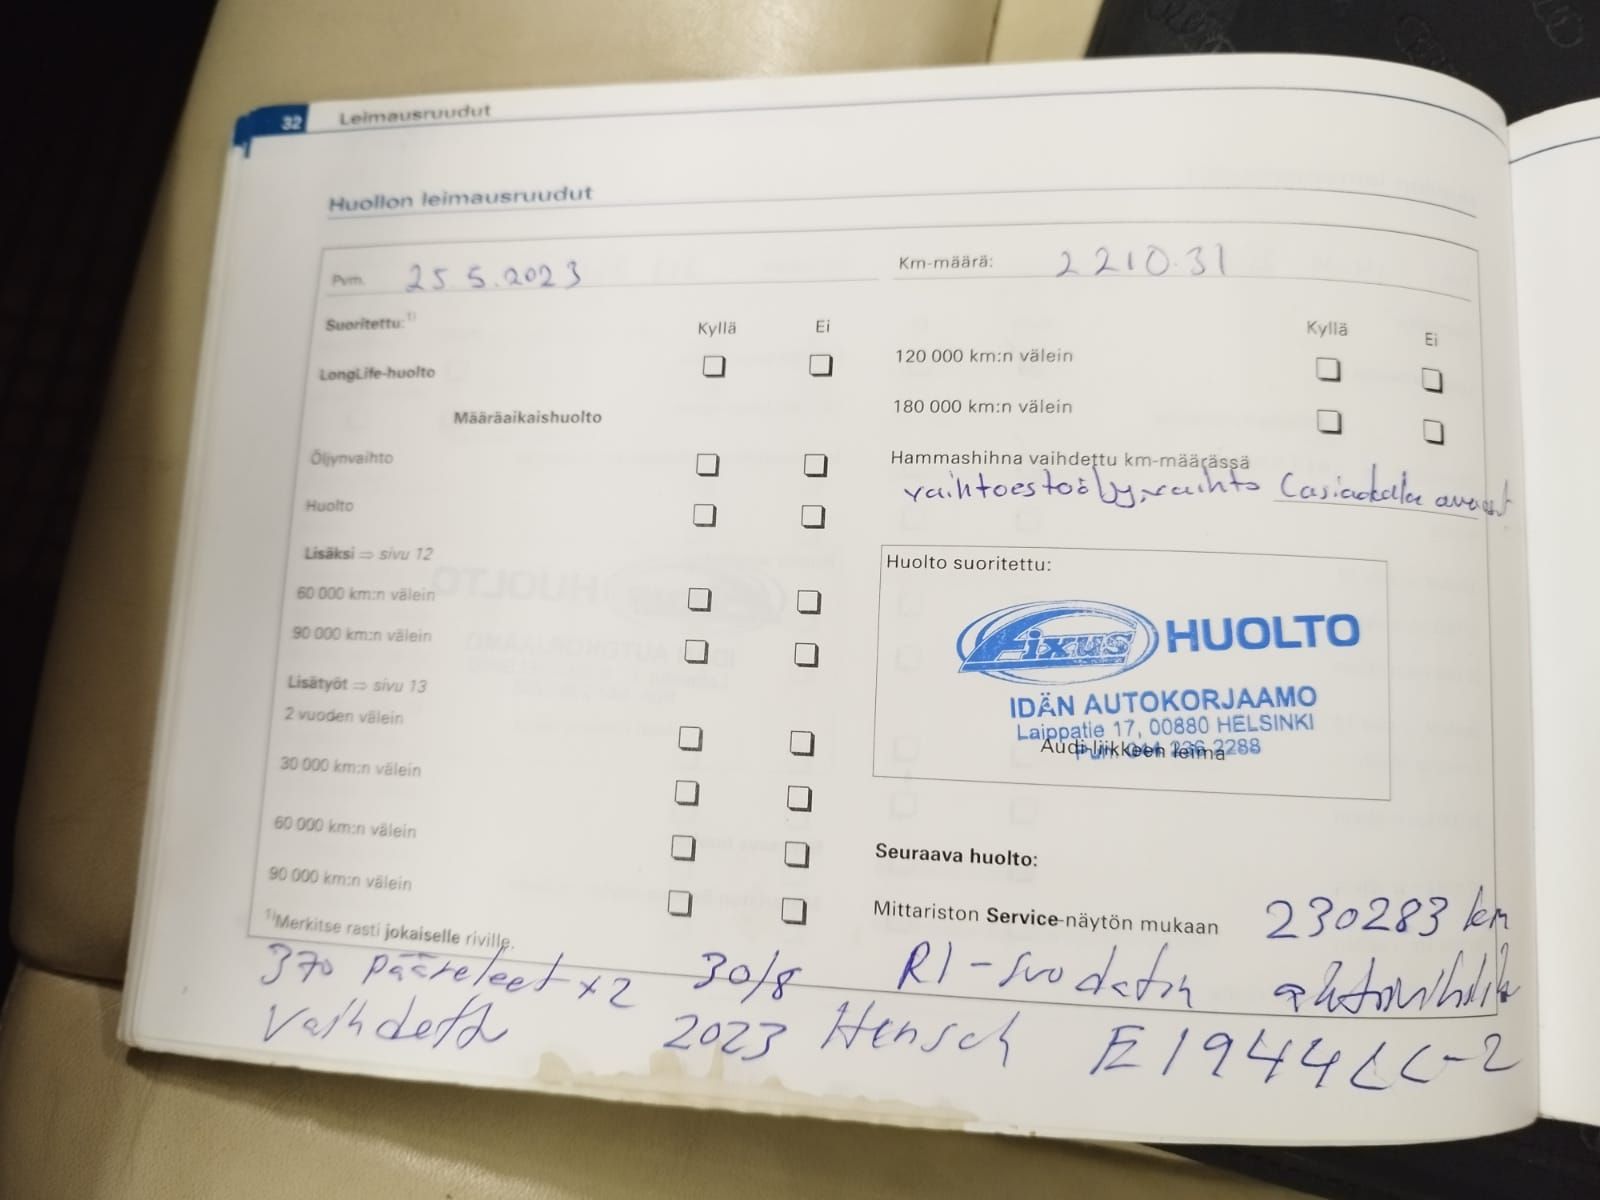 32 Leimausruudut
Huollon leimausruudut
Pvm. 25.5.2023
Km-määrä: 221031
Suoritettu:1) Kyllä Ei
LongLife-huolto
Määräaikaishuolto
Öljynvaihto
Huolto
Lisäksi ⇒ sivu 12
60 000 km:n välein
90 000 km:n välein
Lisätyöt ⇒ sivu 13
2 vuoden välein
30 000 km:n välein
60 000 km:n välein
90 000 km:n välein
1)Merkitse rasti jokaiselle riville.
Kyllä Ei
120 000 km:n välein
180 000 km:n välein
Hammashihna vaihdettu km-määrässä
vaihtoestoöljyvaihto
Huolto suoritettu:
Fixus HUOLTO
IDÄN AUTOKORJAAMO
Laippatie 17, 00880 HELSINKI
Audi-liikkeen leima
Seuraava huolto:
Mittariston Service-näytön mukaan 230283 km
370 x 2 30/8 RI-suodatin
Vaihdettu 2023 E1944LC-2